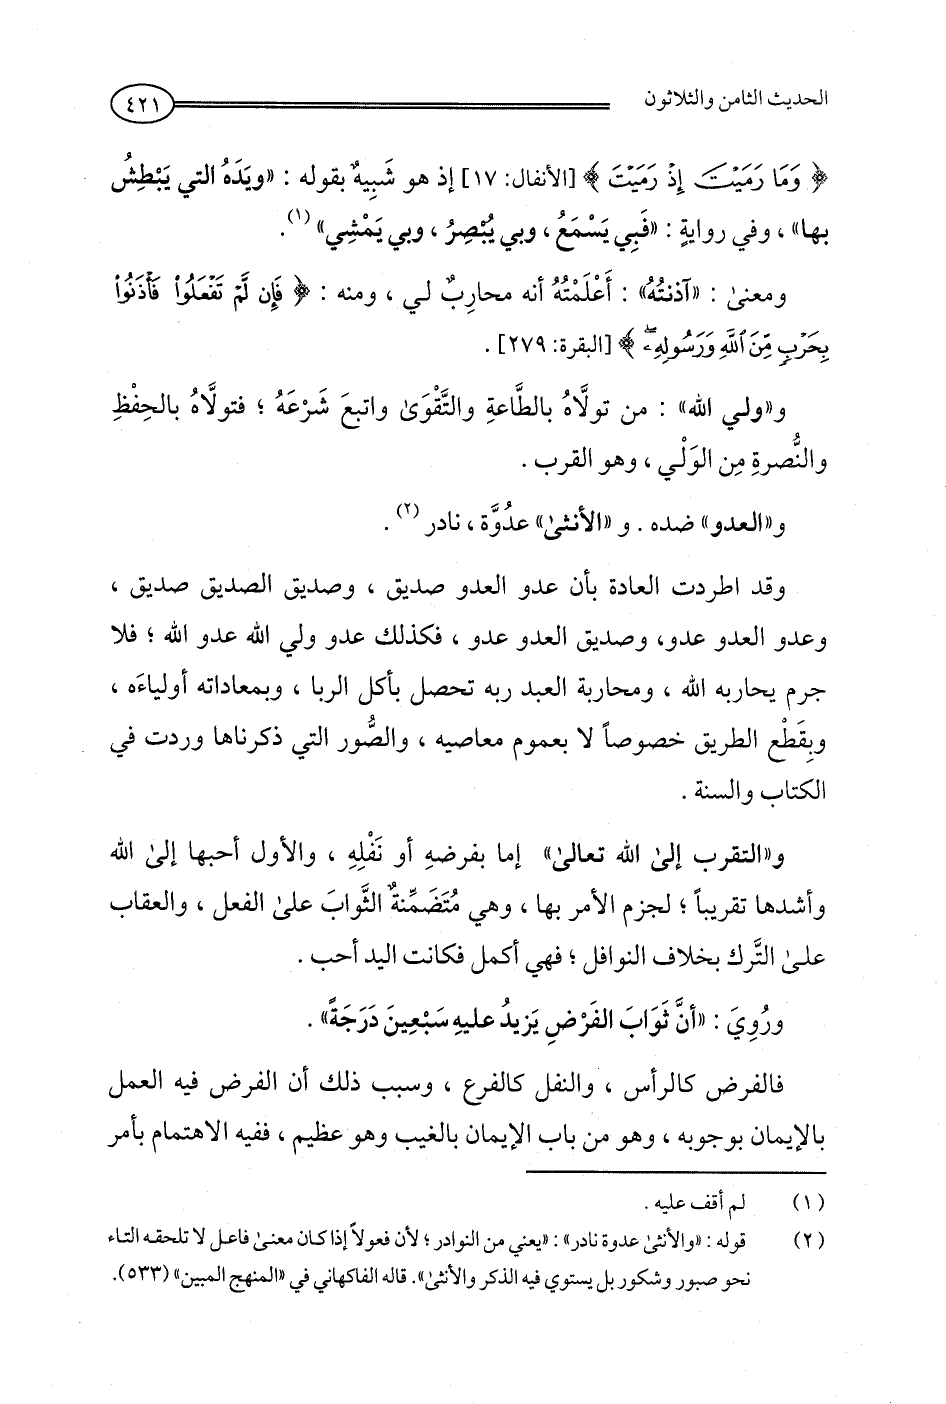 الحديث الثامن والثلاثون ٤٢١
﴿ وَمَا رَمَيْتَ إِذْ رَمَيْتَ ﴾ [الأنفال: ١٧] إذ هو شَبِيهٌ بقوله : «ويَدَهُ التي يَبْطشُ
بها» ، وفي روايةٍ : «فَبِي يَسْمَعُ ، وبي يُبْصِرُ ، وبي يَمْشِي» (١).
ومعنىٰ : «آذنتُهُ» : أَعْلَمْتُهُ أنه محاربٌ لي ، ومنه : ﴿ فَإِن لَّمْ تَفْعَلُوا۟ فَأْذَنُوا۟
بِحَرْبٍ مِّنَ ٱللَّهِ وَرَسُولِهِۦ ﴾ [البقرة: ٢٧٩] .
و«ولي الله» : من تولَّاهُ بالطَّاعةِ والتَّقْوَىٰ واتبعَ شَرْعَهُ ؛ فتولاهُ بالحِفْظِ
والنُّصرةِ مِن الوَلْي ، وهو القرب .
و«العدو» ضده . و «الأنثىٰ» عدُوَّة ، نادر (٢) .
وقد اطردت العادة بأن عدو العدو صديق ، وصديق الصديق صديق ،
وعدو العدو عدو، وصديق العدو عدو ، فكذلك عدو ولي الله عدو الله ؛ فلا
جرم يحاربه الله ، ومحاربة العبد ربه تحصل بأكل الربا ، وبمعاداته أولياءَه ،
وبِقَطْعِ الطريق خصوصاً لا بعموم معاصيه ، والصُّور التي ذكرناها وردت في
الكتاب والسنة .
و«التقرب إلىٰ الله تعالىٰ» إما بفرضهِ أو نَفْلِهِ ، والأول أحبها إلىٰ الله
وأشدها تقريباً ؛ لجزم الأمر بها ، وهي مُتَضَمِّنةٌ الثَّوابَ علىٰ الفعل ، والعقاب
علىٰ التَّرك بخلاف النوافل ؛ فهي أكمل فكانت اليد أحب .
ورُوِيَ : «أنَّ ثَوَابَ الفَرْضِ يَزِيدُ عليهِ سَبْعِينَ دَرَجَةً» .
فالفرض كالرأس ، والنفل كالفرع ، وسبب ذلك أن الفرض فيه العمل
بالإيمان بوجوبه ، وهو من باب الإيمان بالغيب وهو عظيم ، ففيه الاهتمام بأمر
(١) لم أقف عليه .
(٢) قوله : «والأنثىٰ عدوة نادر» : «يعني من النوادر ؛ لأن فعولاً إذا كان معنىٰ فاعل لا تلحقه التاء
نحو صبور وشكور بل يستوي فيه الذكر والأنثىٰ». قاله الفاكهاني في «المنهج المبين» (٥٣٣).